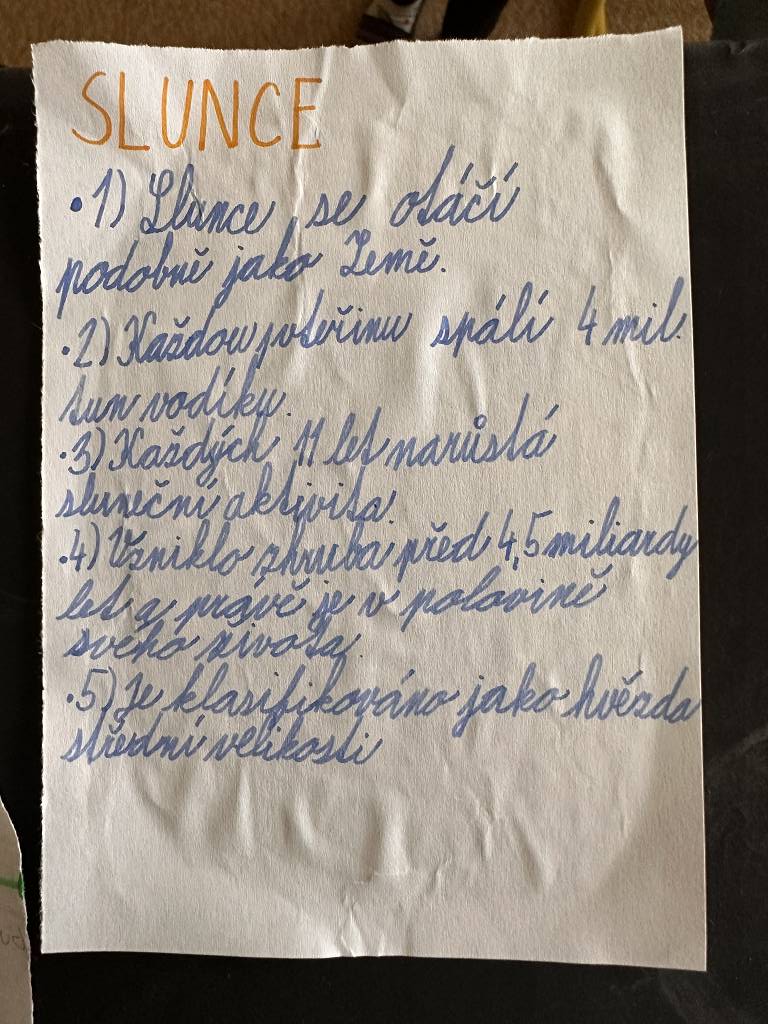 SLUNCE
• 1) Slunce se otáčí
podobně jako Země.
• 2) Každou vteřinu spálí 4 mil.
tun vodíku.
• 3) Každých 11 let narůstá
sluneční aktivita.
• 4) Vzniklo zhruba před 4,5 miliardy
let a právě je v polovině
svého života.
• 5) Je klasifikováno jako hvězda
střední velikosti